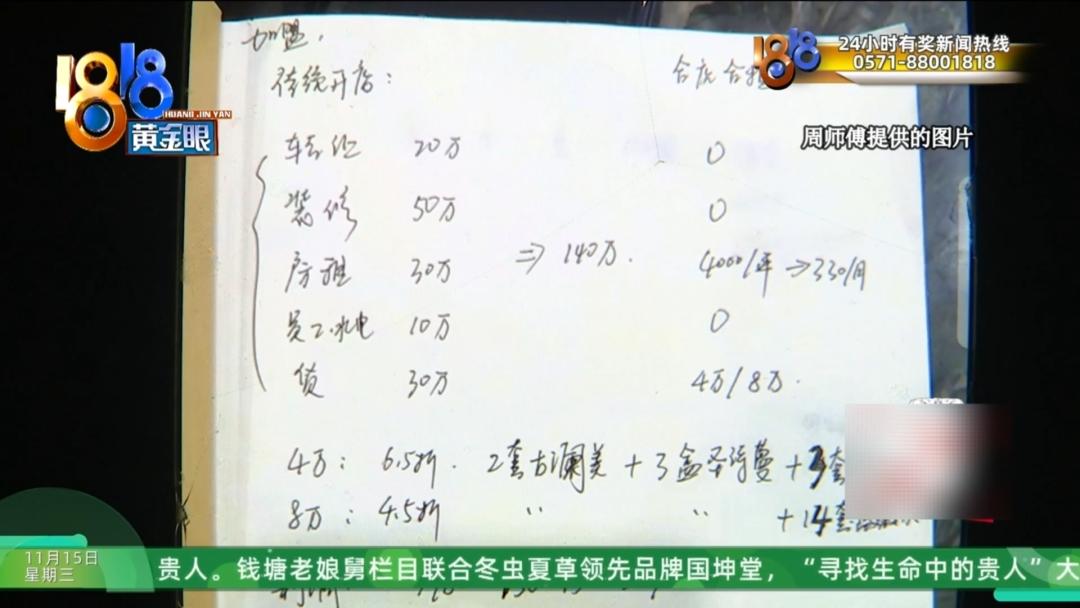 加盟.
24小时有奖新闻热线
0571-88001818
1818
HUANG JIN YAN
黄金眼
周师傅提供的图片
传统开店：
转让 20万 0
装修 50万 0
房租 30万 ⇒ 140万. 4000/年 → 330/月
员工.水电 10万 0
货 30万 4万/8万.
4万： 6.5折. 2套 + 3盒 + 3套
8万： 4.5折 〃 〃 + 14套
11月15日
星期三
贵人。钱塘老娘舅栏目联合冬虫夏草领先品牌国坤堂，“寻找生命中的贵人”大